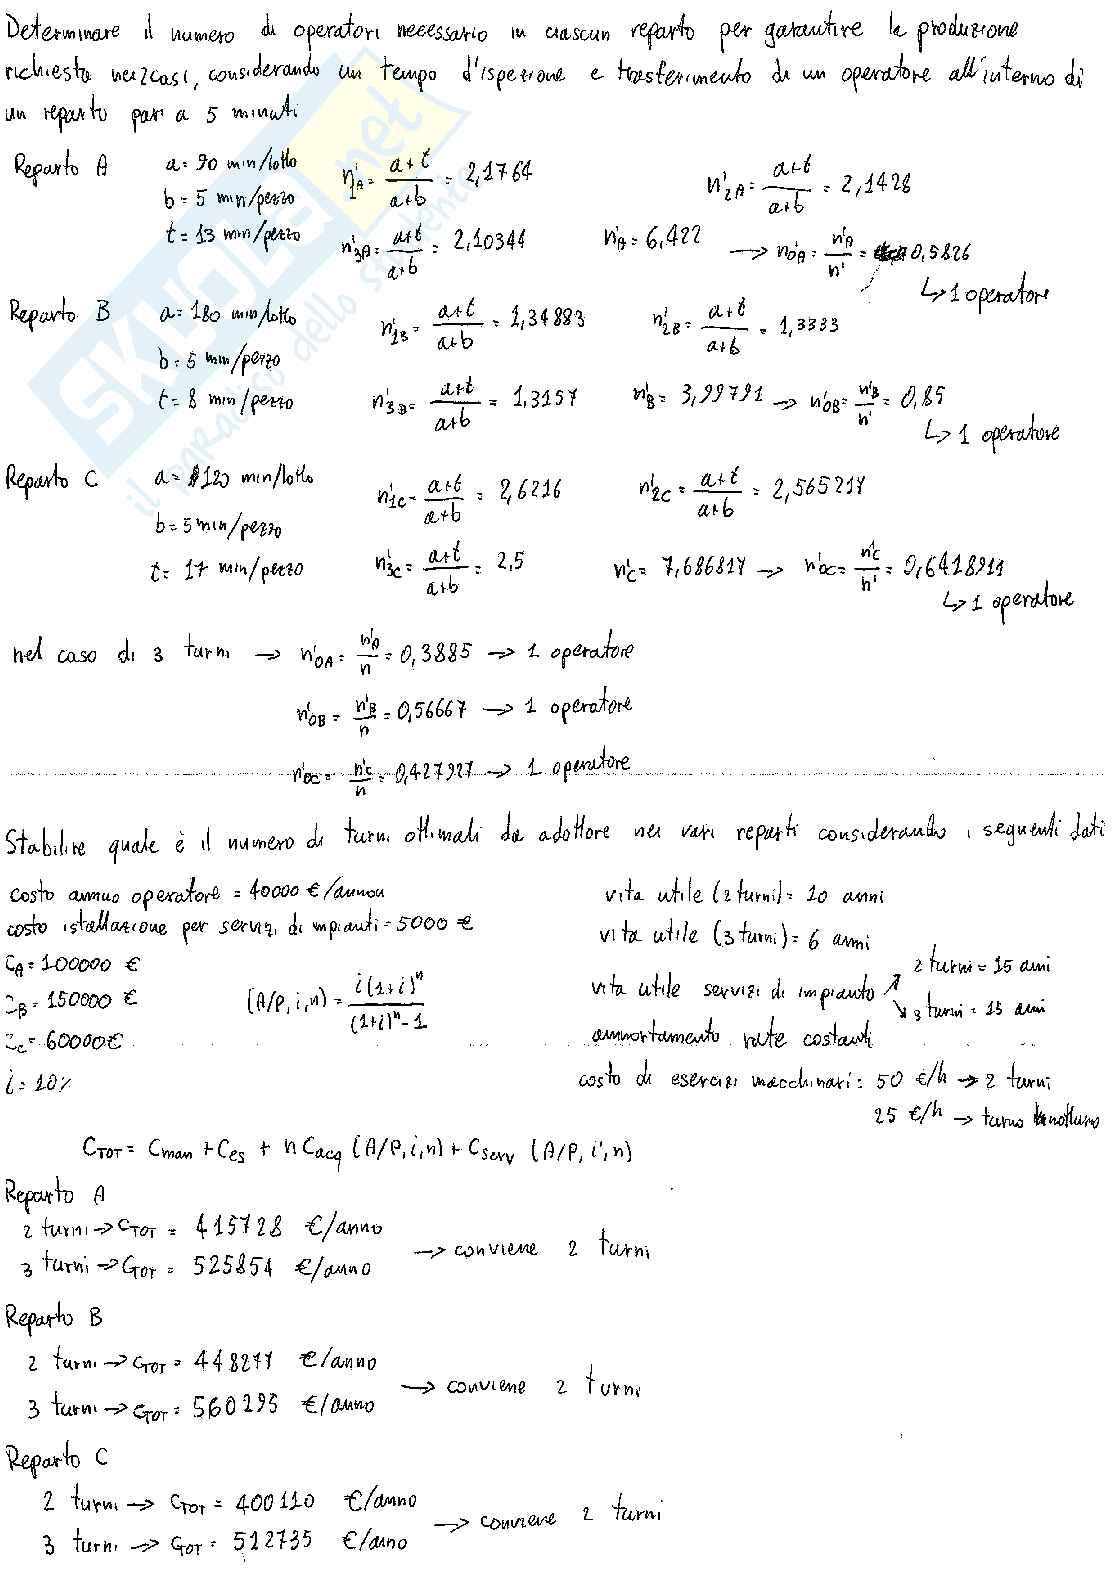 Determinare il numero di operatori necessario in ciascun reparto per garantire la produzione
richiesta nei 2 casi, considerando un tempo d'ispezione e trasferimento di un operatore all'interno di
un reparto pari a 5 minuti
Reparto A a = 90 min/lotto n'1A = a+t / a+b = 2,1764 n'2A = a+t / a+b = 2,1428
b = 5 min/pezzo
t = 13 min/pezzo n'3A = a+t / a+b = 2,10344 n'A = 6,422 → n'OA = n'A / n' = 0,5826
↳ 1 operatore
Reparto B a = 180 min/lotto n'1B = a+t / a+b = 1,34883 n'2B = a+t / a+b = 1,3333
b = 5 min/pezzo
t = 8 min/pezzo n'3B = a+t / a+b = 1,3157 n'B = 3,99791 → n'OB = n'B / n' = 0,85
↳ 1 operatore
Reparto C a = 120 min/lotto n'1C = a+t / a+b = 2,6216 n'2C = a+t / a+b = 2,565217
b = 5 min/pezzo
t = 17 min/pezzo n'3C = a+t / a+b = 2,5 n'C = 7,686817 → n'OC = n'C / n' = 0,6418911
↳ 1 operatore
nel caso di 3 turni → n'OA = n'A / n = 0,3885 → 1 operatore
n'OB = n'B / n = 0,56667 → 1 operatore
n'OC = n'C / n = 0,427927 → 1 operatore
Stabilire quale è il numero di turni ottimali da adottare nei vari reparti considerando i seguenti dati
costo annuo operatore = 40000 €/anno vita utile (2 turni) = 10 anni
costo istallazione per servizi di impianti = 5000 € vita utile (3 turni) = 6 anni
CA = 100000 € vita utile servizi di impianto 2 turni = 15 anni
CB = 150000 € (A/P, i, n) = i(1+i)^n / (1+i)^n - 1 3 turni = 15 anni
Cc = 60000 € ammortamento rate costanti
i = 10% costo di esercizi macchinari = 50 €/h → 2 turni
25 €/h → turno notturno
CTOT = Cman + Ces + n Cacq (A/P, i, n) + Cserv (A/P, i, n)
Reparto A
2 turni → CTOT = 415728 €/anno → conviene 2 turni
3 turni → CTOT = 525854 €/anno
Reparto B
2 turni → CTOT = 448277 €/anno → conviene 2 turni
3 turni → CTOT = 560295 €/anno
Reparto C
2 turni → CTOT = 400110 €/anno → conviene 2 turni
3 turni → CTOT = 512735 €/anno
SKUOLA.net
il paradiso dello studente